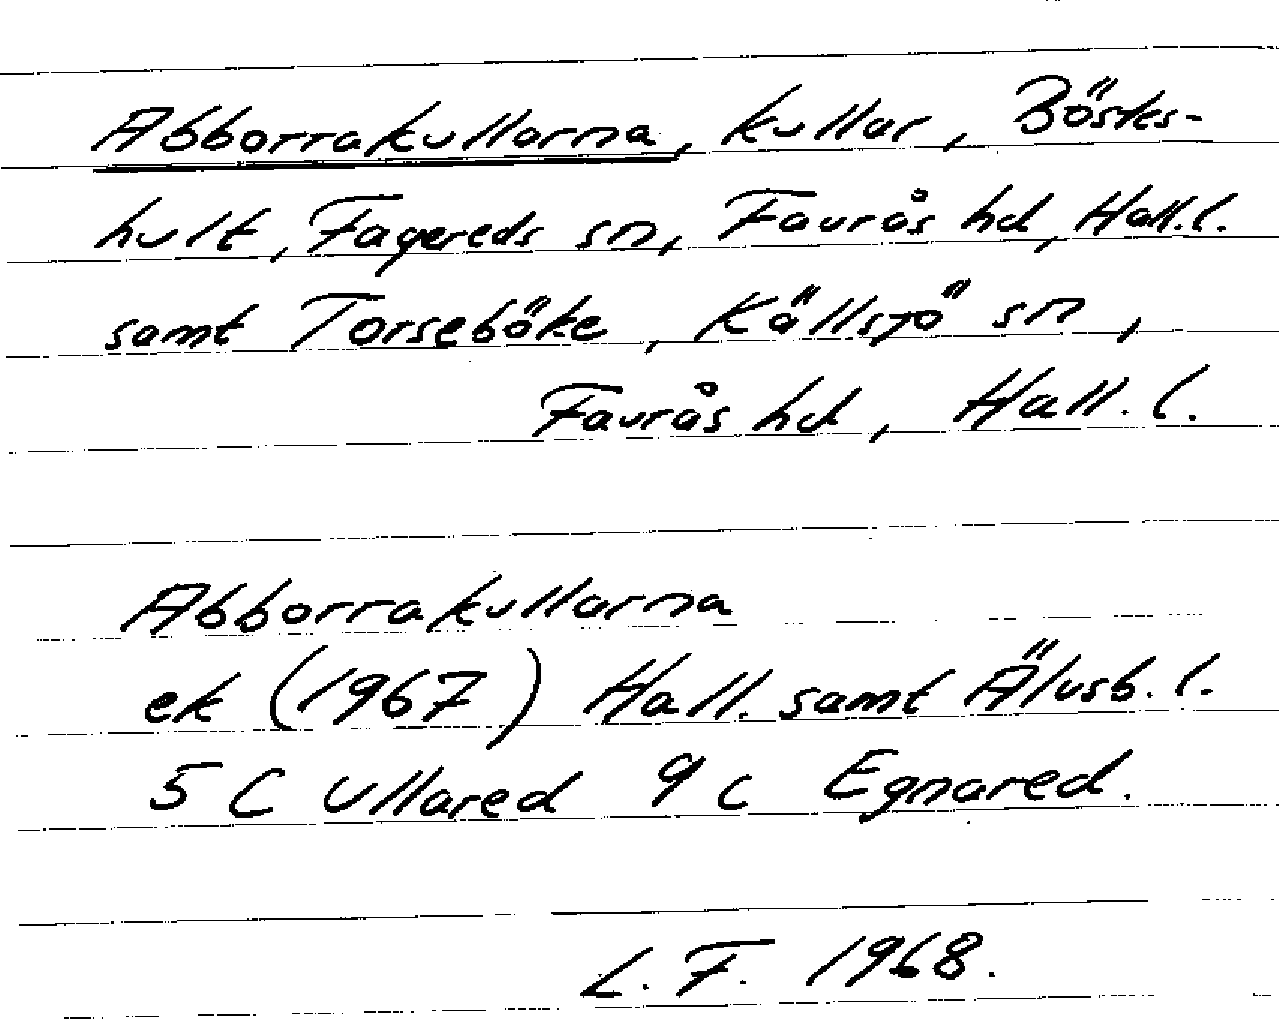 Abborrakullarna, kullar, Böstes-
hult, Fagereds sn, Faurås hd, Hall.l.
samt Torseböke, Källsjö sn,
Faurås hd, Hall. l.
Abborrakullarna
ek (1967) Hall. samt Älvsb. l.
5 C Ullared 9 c Egnared.
L. F. 1968.